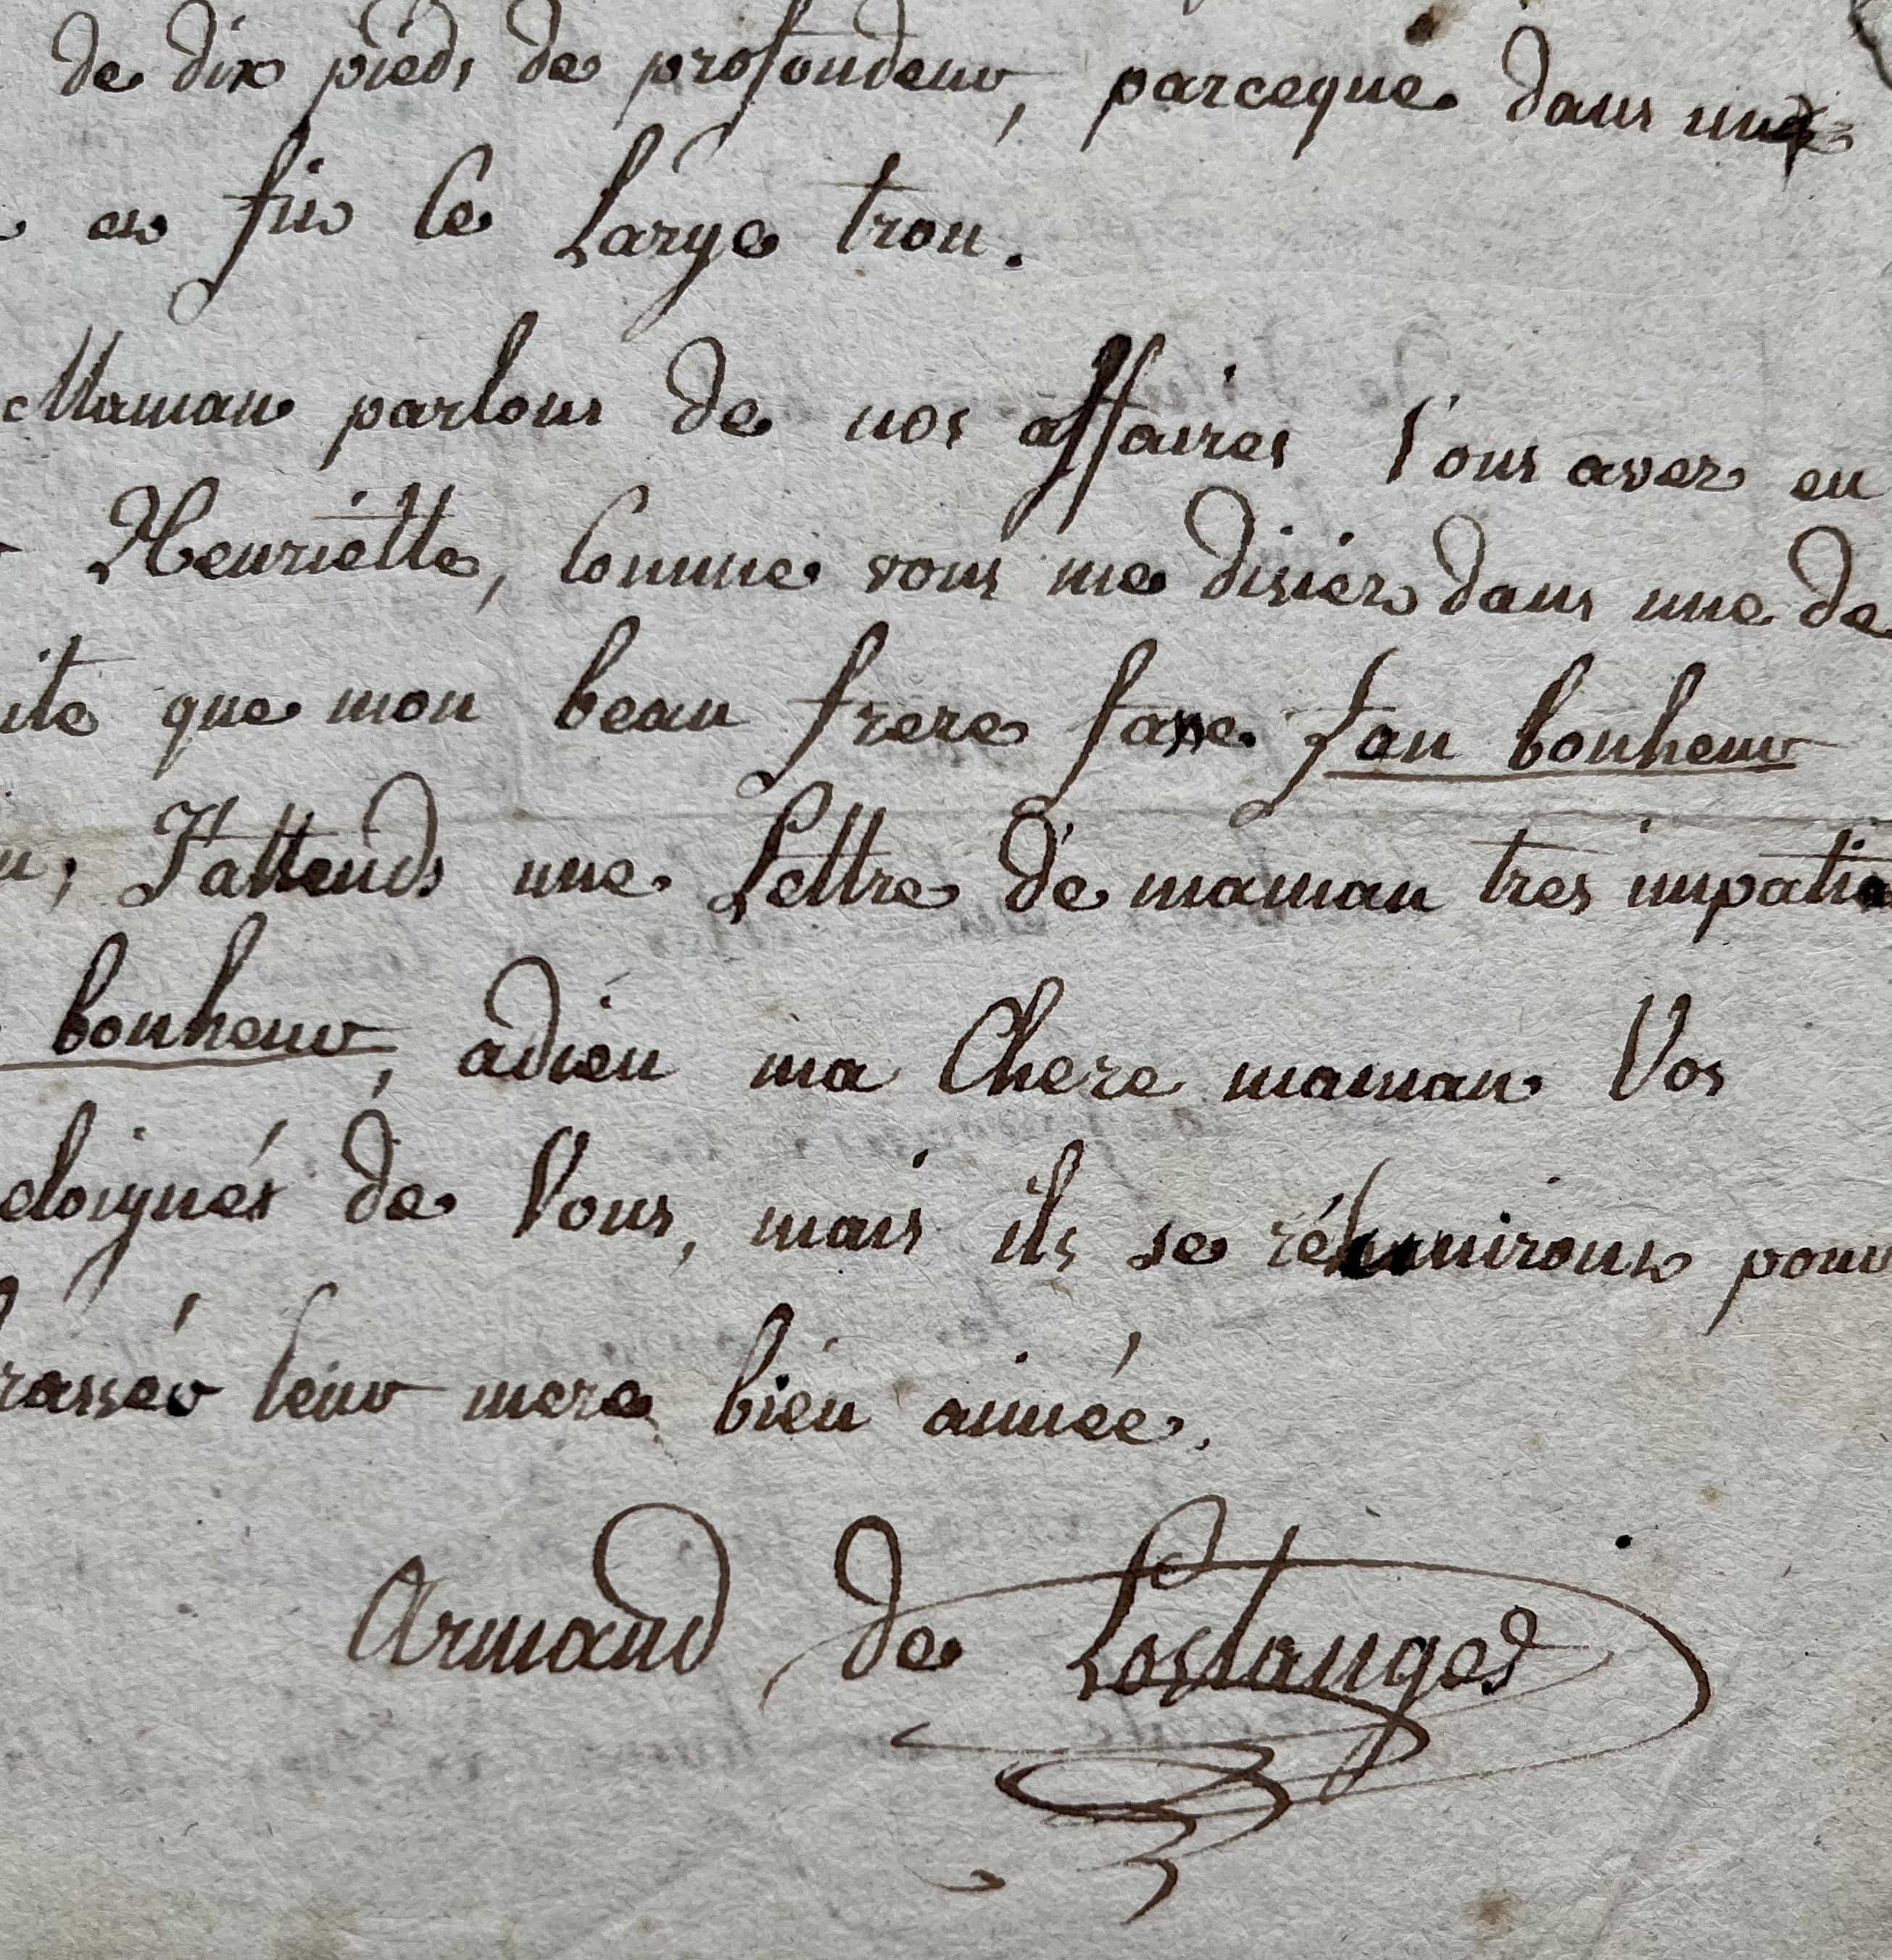 de dix pieds de profondeur, parceque dans une
en fin le Large trou.
Maman parlons de nos affaires Vous avez eu
Henriette, Comme vous me disiez dans une de
ite que mon beau frere fasse son bonheur
J'attends une Lettre de maman tres impatie
bonheur, adieu ma Chere maman Vos
eloignés de Vous, mais ils se réunirons pour
rasser leur mere bien aimée.
Armand de Lostanges